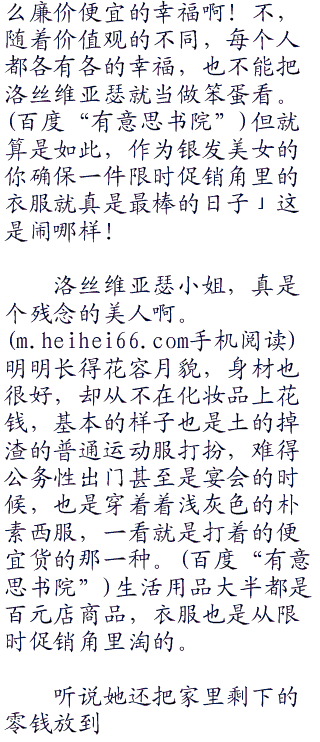 么廉价便宜的幸福啊！不，
随着价值观的不同，每个人
都各有各的幸福，也不能把
洛丝维亚瑟就当做笨蛋看。
(百度“有意思书院”)但就
算是如此，作为银发美女的
你确保一件限时促销角里的
衣服就真是最棒的日子」这
是闹哪样！
洛丝维亚瑟小姐，真是
个残念的美人啊。
(m.heihei66.com手机阅读)
明明长得花容月貌，身材也
很好，却从不在化妆品上花
钱，基本的样子也是土的掉
渣的普通运动服打扮，难得
公务性出门甚至是宴会的时
候，也是穿着着浅灰色的朴
素西服，一看就是打着的便
宜货的那一种。(百度“有意
思书院”)生活用品大半都是
百元店商品，衣服也是从限
时促销角里淘的。
听说她还把家里剩下的
零钱放到